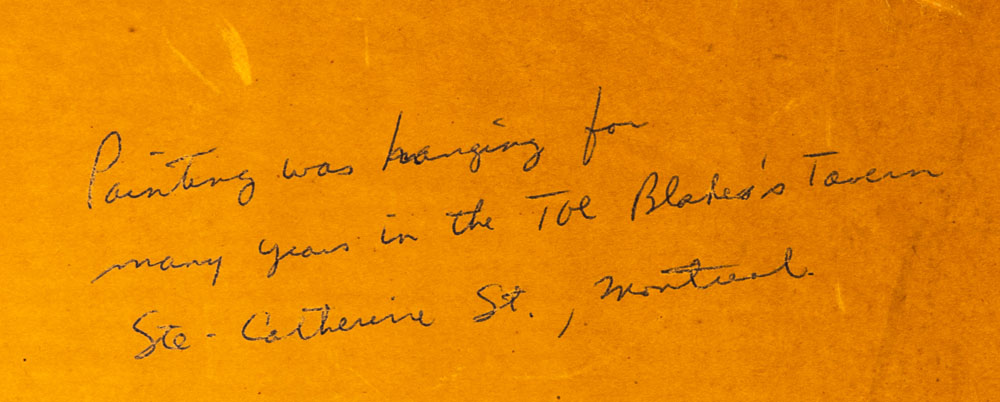 Painting was hanging for
many years in the TOE Blakes's Tavern
Ste-Catherine St., Montreal.